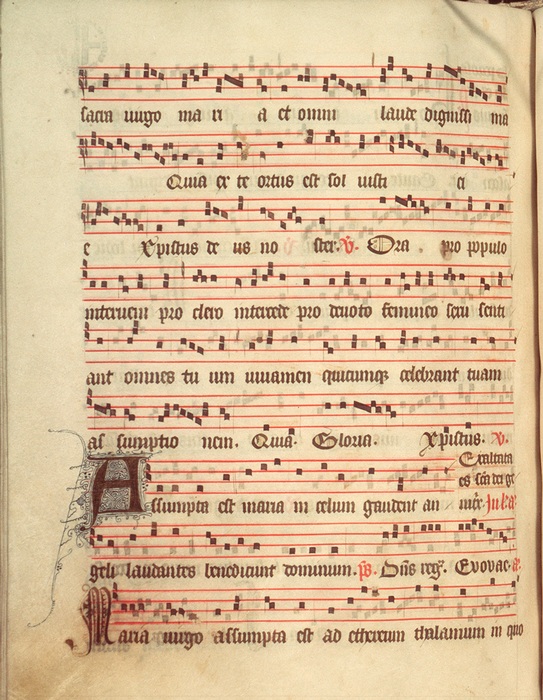 sacra uirgo ma ri a et omni laude digniſſi ma
Quia ex te ortus est sol iusti ci
e Xpistus de us no ster. V. Ora pro populo
interueni pro clero intercede pro deuoto femineo sexu senti
ant omnes tu um iuuamen quicumq; celebrant tuam
as sumptio nem. Quia. Gloria. Xpistus. V.
Exaltata
es sca dei ge
Assumpta est maria in celum gaudent an
geli laudantes benedicunt dominum. ps. Dns reg. Evovae.
Maria uirgo assumpta est ad ethereum thalamum in quo